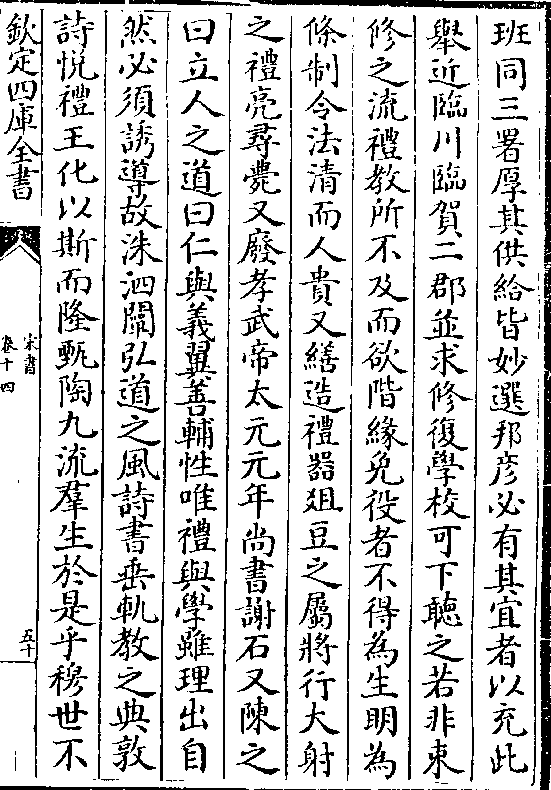 班同三署厚其供給皆妙選邦彦必有其宜者以充此
舉近臨川臨賀二郡並求修復學校可下聽之若非束
修之流禮教所不及而欲階緣免役者不得為生明為
條制令法清而人貴又繕造禮器俎豆之屬將行大射
之禮亮尋薨又廢孝武帝太元元年尚書謝石又陳之
曰立人之道曰仁與義翼善輔性唯禮與學雖理出自
然必須誘導故洙泗闡弘道之風詩書垂軌教之典敦
詩悦禮王化以斯而隆甄陶九流羣生於是乎穆世不
欽定四庫全書
宋書
卷十四
五十